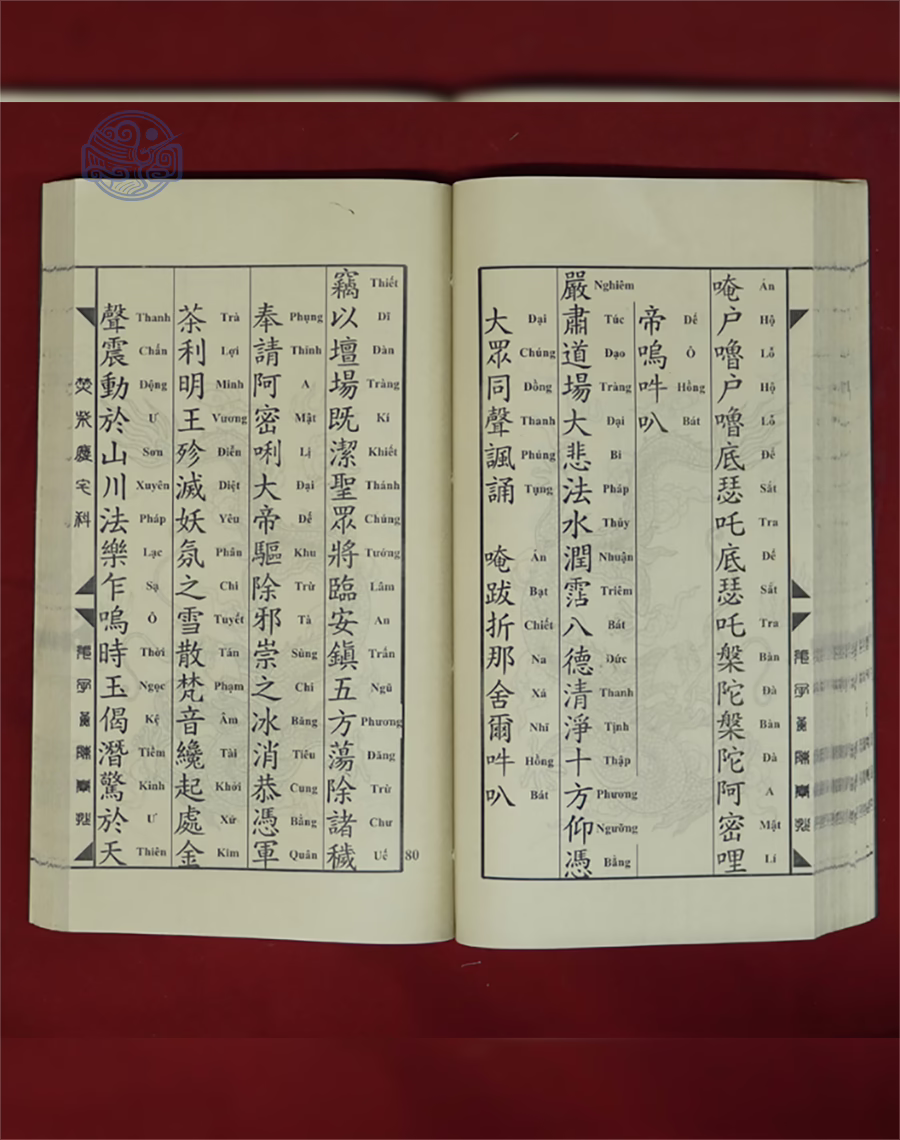 唵户嚕户嚕底瑟吒底瑟吒槃陀槃陀阿密哩
Án Hộ Lỗ Hộ Lỗ Đế Sất Tra Đế Sất Tra Bàn Đà Bàn Đà A Mật Lí
帝嗚吽叭
Đế Ô Hồng Bát
嚴肅道場大悲法水潤霑八德清淨十方仰憑
Nghiêm Túc Đạo Tràng Đại Bi Pháp Thủy Nhuận Triêm Bát Đức Thanh Tịnh Thập Phương Ngưỡng Bằng
大眾同聲諷誦 唵跋折那舍爾吽叭
Đại Chúng Đồng Thanh Phúng Tụng Án Bạt Chiết Na Xá Nhĩ Hồng Bát
竊以壇場既潔聖眾將臨安鎮五方蕩除諸穢
Thiết Dĩ Đàn Tràng Kí Khiết Thánh Chúng Tướng Lâm An Trấn Ngũ Phương Đãng Trừ Chư Uế
奉請阿密唎大帝驅除邪崇之冰消恭憑軍
Phụng Thỉnh A Mật Lị Đại Đế Khu Trừ Tà Sùng Chi Băng Tiêu Cung Bằng Quân
茶利明王殄滅妖氛之雪散梵音纔起處金
Trà Lợi Minh Vương Diễn Diệt Yêu Phân Chi Tuyết Tán Phạm Âm Tài Khởi Xứ Kim
聲震動於山川法樂乍嗚時玉偈潛驚於天
Thanh Chấn Động Ư Sơn Xuyên Pháp Lạc Sạ Ô Thời Ngọc Kệ Tiềm Kinh Ư Thiên
祭慶宅科
80